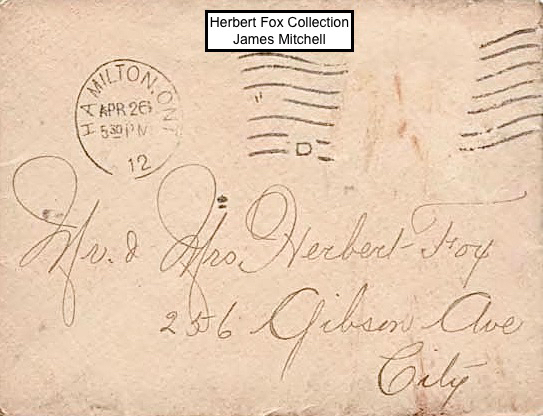 Herbert Fox Collection
James Mitchell
HAMILTON. ONT
APR 26
5 30 PM
12
D
Mr. & Mrs. Herbert Fox
256 Gibson Ave
City